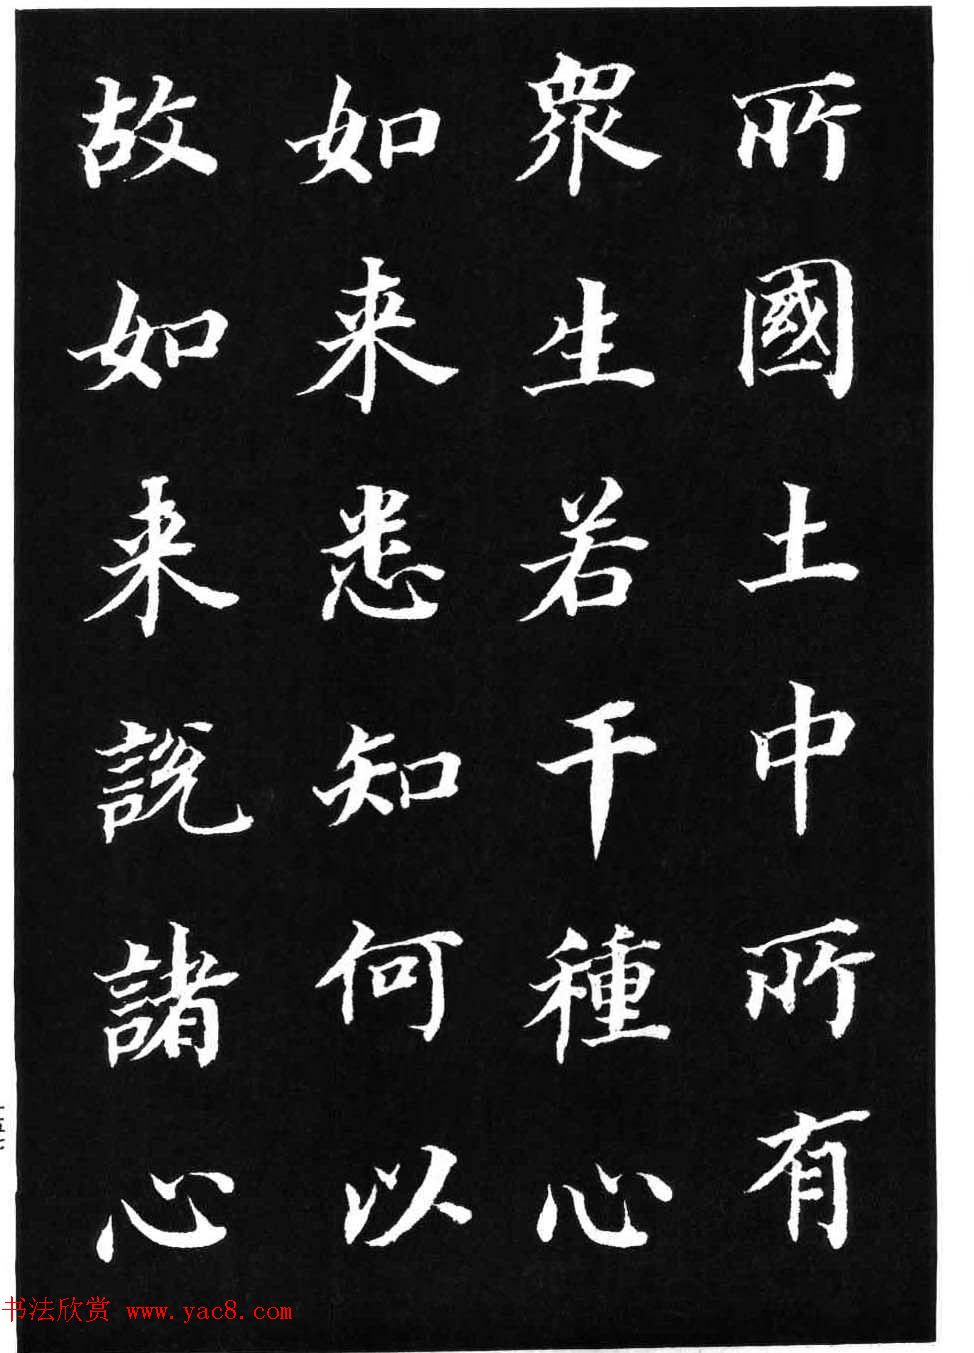 所國土中所有
眾生若干種心
如来悉知何以
故如来説諸心
书法欣赏 www.yac8.com